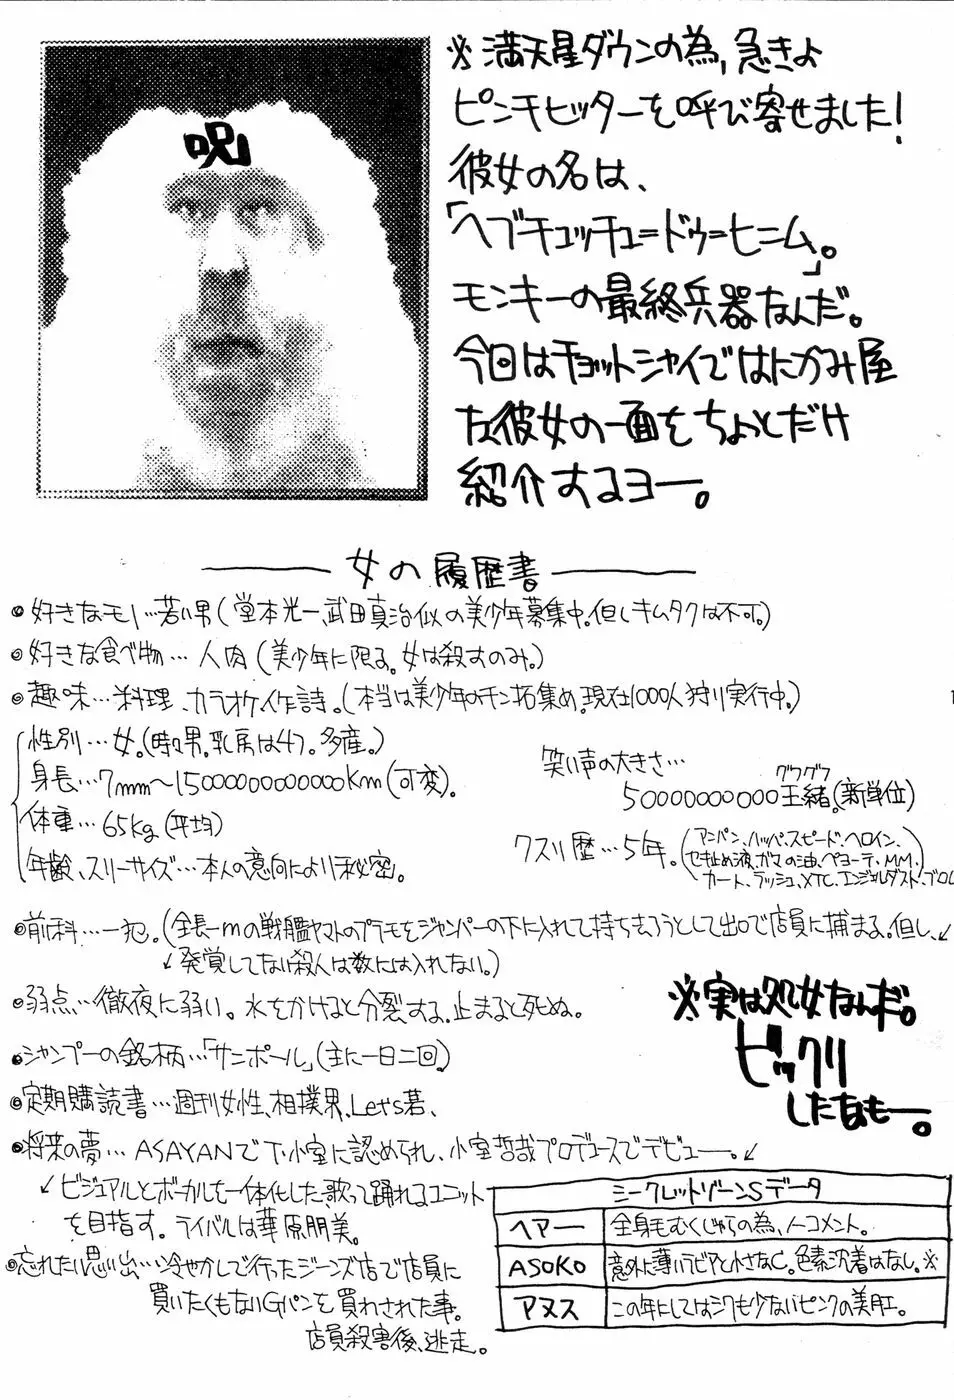 ※満天星ダウンの為,急きょ
ピンチヒッターを呼び寄せました!
彼女の名は、
「ヘブチュッチュ=ドゥ=ヒニム」。
モンキーの最終兵器なんだ。
今回はチョットシャイではにかみ屋
な彼女の一面をちょっとだけ
紹介するヨー。
呪
女の履歴書
●好きなモノ…若い男(堂本光一、武田真治似の美少年募集中。但しキムタクは不可。)
●好きな食べ物…人肉(美少年に限る。女は殺すのみ。)
●趣味…料理、カラオケ、作詩。(本当は美少年のチン拓集め。現在1000人狩り実行中。)
性別…女。(時々男。乳房は47。多産。)
身長…7mm〜1500000000000Km(可変)。
体重…65kg(平均)
年齢、スリーサイズ…本人の意向により秘密。
笑い声の大きさ…
グウグウ
50000000000王緒。(新単位)
クスリ歴…5年。(アンパン、ハッパ、スピード、ヘロイン、
セキ止め液、ガマの油、ペヨーテ、MM、
カート、ラッシュ、XTC、エンジェルダスト、ブロ
●前科…一犯。(全長一mの戦艦ヤマトのプラモをジャンパーの下に入れて持ち去ろうとして出口で店員に捕まる。但し、↙
↙発覚してない殺人は数には入れない。)
●弱点…徹夜に弱い。水をかけると分裂する。止まると死ぬ。
●シャンプーの銘柄…「サンポール」(主に一日二回)
●定期購読書…週刊女性、相撲界、Let's若、
●将来の夢…ASAYANで下小室に認められ、小室哲哉プロデュースでデビュー。↙
↙ビジュアルとボーカルを一体化した、歌って踊れるユニット
を目指す。ライバルは華原朋美。
●忘れたい思い出…冷やかしで行ったジーンズ店で店員に
買いたくもないGパンを買わされた事。
店員殺害後、逃走。
※実は処女なんだ。
ビックリ
したなもー。
シークレットゾーンSデータ
ヘアー 全身毛むくじゃらの為、ノーコメント。
ASOKO 意外に薄いラビアと小さなC。色素沈着はなし。※
アヌス この年にしてはシワも少ないピンクの美肛。